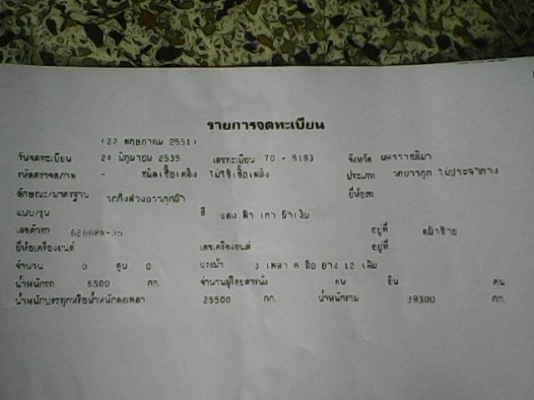 รายการจดทะเบียน
(22 พฤษภาคม 2551)
วันจดทะเบียน 24 มิถุนายน 2535 เลขทะเบียน 70 - 5193 จังหวัด นครราชสีมา
รหัสตรวจสภาพ - ชนิดเชื้อเพลิง ไม่ใช้เชื้อเพลิง ประเภท รถบรรทุก ไม่ประจำทาง
ลักษณะ/มาตรฐาน รถกึ่งพ่วงบรรทุก ยี่ห้อรถ
แบบ/รุ่น สี แดง ฟ้า เทา น้ำเงิน
เลขตัวรถ อยู่ที่
ยี่ห้อเครื่องยนต์ เลขเครื่องยนต์ อยู่ที่
จำนวน 0 สูบ 0 แรงม้า 3 เพลา 6 ล้อ ยาง 12 เส้น
น้ำหนักรถ 6500 กก. จำนวนผู้โดยสารนั่ง คน ยืน คน
น้ำหนักบรรทุกหรือน้ำหนักลงเพลา 25500 กก. น้ำหนักรวม กก.